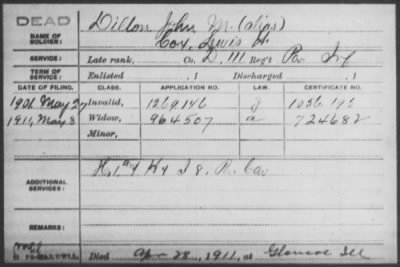 DEAD
NAME OF SOLDIER: Dillon, John M. (alias)
Cox, Lewis H.
SERVICE: Late rank, Co. D, 111 Reg't Pa Inf
TERM OF SERVICE: Enlisted , 1 Discharged , 1
DATE OF FILING. CLASS. APPLICATION NO. LAW. CERTIFICATE NO.
1901, May 2 Invalid, 1269146 J 1036 195
1911, May 8 Widow, 964507 a 724682
Minor,
ADDITIONAL SERVICES: H, 1st Ky I 8, Pa Cav
REMARKS:
Died Apr 28, 1911, at Glencoe Ill